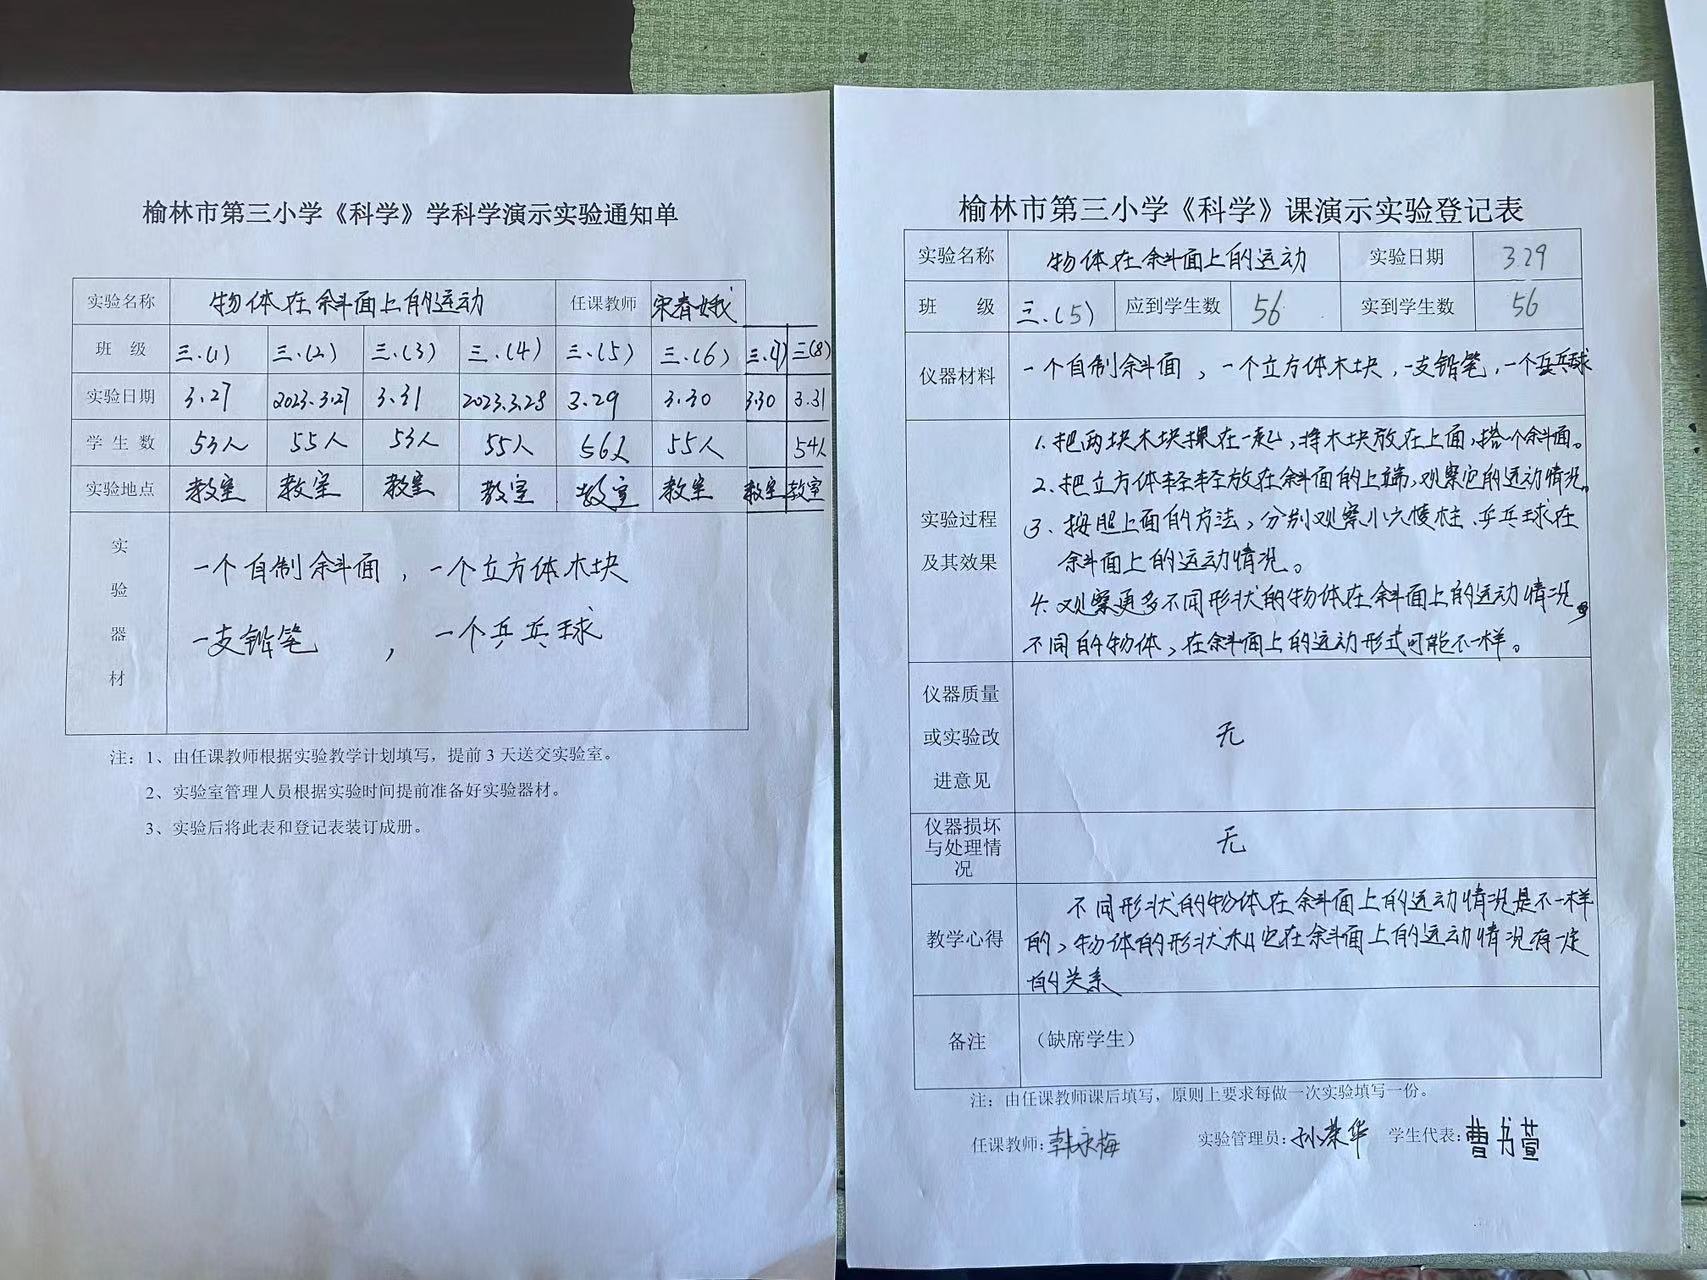 榆林市第三小学《科学》学科学演示实验通知单
实验名称 物体在斜面上的运动 任课教师 宋春娥
班 级 三.(1) 三.(2) 三.(3) 三.(4) 三.(5) 三.(6) 三.(7) 三(8)
实验日期 3.27 2023.3.27 3.31 2023.3.28 3.29 3.30 3.30 3.31
学 生 数 53人 55人 53人 55人 56人 55人 54人
实验地点 教室 教室 教室 教室 教室 教室 教室 教室
实验器材
一个自制斜面，一个立方体木块
一支铅笔，一个乒乓球
注：1、由任课教师根据实验教学计划填写，提前 3 天送交实验室。
2、实验室管理人员根据实验时间提前准备好实验器材。
3、实验后将此表和登记表装订成册。
榆林市第三小学《科学》课演示实验登记表
实验名称 物体在斜面上的运动 实验日期 3.29
班 级 三.(5) 应到学生数 56 实到学生数 56
仪器材料 一个自制斜面，一个立方体木块，一支铅笔，一个乒乓球
实验过程及其效果
1、把两块木块摞在一起，将木块放在上面，搭个斜面。
2、把立方体轻轻放在斜面的上端，观察它的运动情况。
3、按照上面的方法，分别观察小六棱柱、乒乓球在
斜面上的运动情况。
4、观察更多不同形状的物体在斜面上的运动情况。
不同的物体，在斜面上的运动形式可能不一样。
仪器质量
或实验改
进意见
无
仪器损坏
与处理情
况
无
教学心得
不同形状的物体在斜面上的运动情况是不一样
的，物体的形状和它在斜面上的运动情况有一定
的关系
备注 （缺席学生）
注：由任课教师课后填写，原则上要求每做一次实验填写一份。
任课教师:韩永梅 实验管理员:孙荣华 学生代表:曹书萱